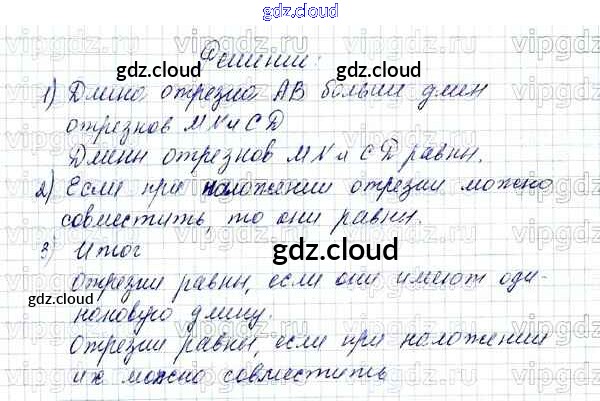 gdz.cloud
Решение:
1) Длина отрезка АВ больше длин
отрезков MN и CD
Длины отрезков MN и CD равны.
2) Если при наложении отрезки можно
совместить, то они равны.
3) Итог
Отрезки равны, если они имеют оди-
наковую длину.
Отрезки равны, если при наложении
их можно совместить
gdz.cloud
gdz.cloud
gdz.cloud
gdz.cloud
gdz.cloud
gdz.cloud